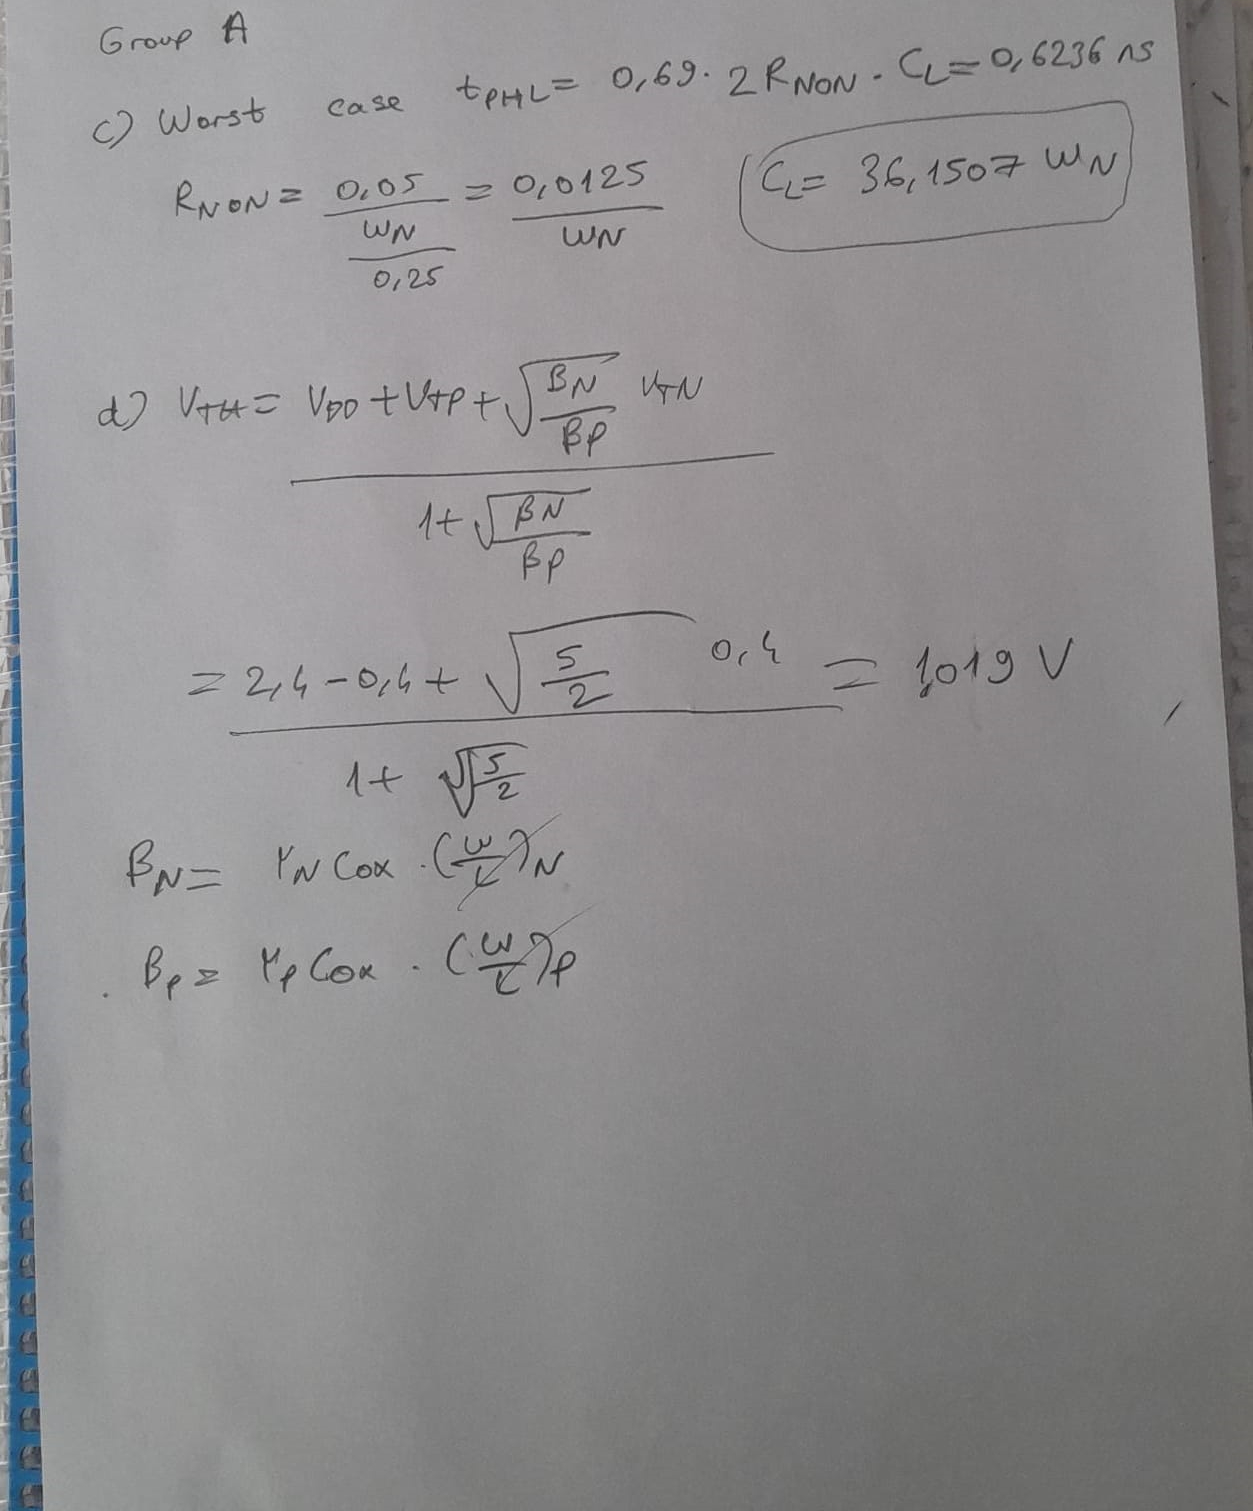 Group A
c) Worst case tPHL = 0,69 · 2 RNON · CL = 0,6236 ns
RNON = 0,05 / (WN / 0,25) = 0,0125 / WN
CL = 36,1507 WN
d) VTH = (VDD + VTP + √(βN/βP) VTN) / (1 + √(βN/βP))
= (2,4 - 0,4 + √(5/2) 0,4) / (1 + √(5/2)) = 1,019 V
βN = μN Cox · (W/L)N
βP = μP Cox · (W/L)P